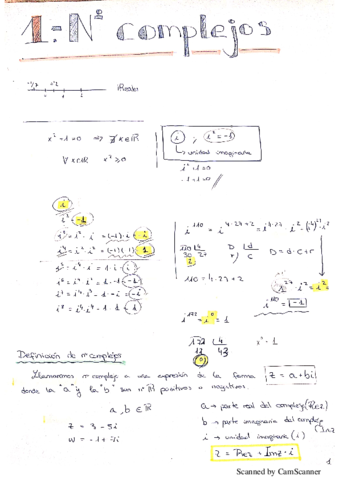 1: Nº complejos
Reales
x² + 1 = 0 ⇒ ∄ x ∈ ℝ
∀ x ∈ ℝ x² ≥ 0
i ; i² = -1
unidad imaginaria
i² + 1 = 0
-1 + 1 = 0
i
i² = -1
i³ = i² · i = (-1) · i = -i
i⁴ = i² · i² = (-1)(-1) = 1
i⁵ = i⁴ · i = 1 · i = i
i⁶ = i⁴ · i² = 1 · -1 = -1
i⁷ = i⁴ · i³ = 1 · -i = -i
i⁸ = i⁴ · i⁴ = 1 · 1 = 1
110 | 4
30 27
2
D | d
r) c
D = d · c + r
110 = 4 · 27 + 2
i¹¹⁰ = -1
i¹⁷² = i⁰ = 1
172 | 4
12 43
0
Definición de nº complejos
Llamaremos nº complejo a una expresión de la forma z = a + bi
donde la "a" y la "b" son nº ℝ positivos o negativos.
a, b ∈ ℝ
z = 3 - 5i
a → parte real del complejo (Re z)
b → parte imaginaria del complejo (Im z)
i → unidad imaginaria (i)
z = Re z + Im z · i
1
Scanned by CamScanner